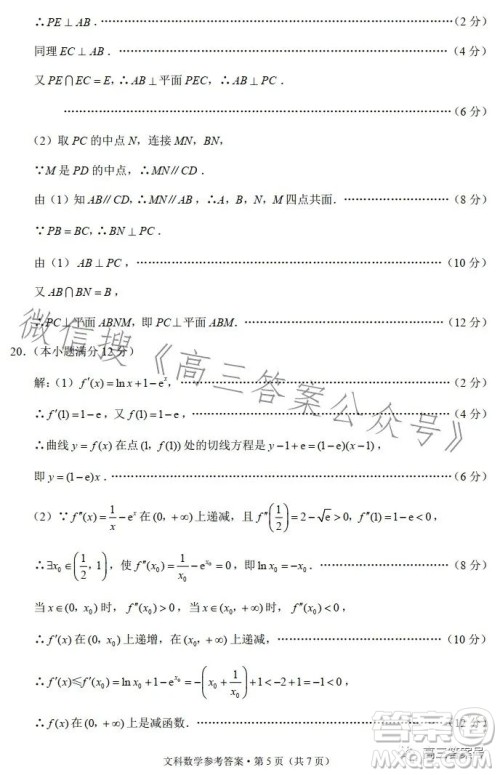 ∴PE⊥AB．……（2 分）
同理 EC⊥AB．……（4 分）
又 PE∩EC=E，∴AB⊥平面 PEC，∴AB⊥PC．
……（6 分）
（2）取 PC 的中点 N，连接 MN，BN，
∵M 是 PD 的中点，∴MN∥CD．
由（1）知 AB∥CD，∴MN∥AB，∴A，B，N，M 四点共面．……（8 分）
∵PB=BC，∴BN⊥PC．
由（1）AB⊥PC，……（10 分）
又 AB∩BN=B，
∴PC⊥平面 ABNM，即 PC⊥平面 ABM．……（12 分）
20．（本小题满分 12 分）
解：（1）f′(x)=ln x+1−e^x，……（2 分）
∴f′(1)=1−e，又 f(1)=1−e，……（4 分）
∴曲线 y=f(x) 在点 (1, f(1)) 处的切线方程是 y−1+e=(1−e)(x−1)，
即 y=(1−e)x．……（6 分）
（2）∵f″(x)=1/x−e^x 在 (0，+∞) 上递减，且 f″(1/2)=2−√e>0，f″(1)=1−e<0，
∴∃x₀∈(1/2，1)，使 f″(x₀)=1/x₀−e^(x₀)=0，即 ln x₀=−x₀．……（8 分）
当 x∈(0, x₀) 时，f″(x)>0，当 x∈(x₀，+∞) 时，f″(x)<0，
∴f′(x) 在 (0, x₀) 上递增，在 (x₀，+∞) 上递减，……（10 分）
∴f′(x)≤f′(x₀)=ln x₀+1−e^(x₀)=−(x₀+1/x₀)+1<−2+1=−1<0，
∴f(x) 在 (0，+∞) 上是减函数．……（12 分）
文科数学参考答案·第 5 页（共 7 页）
微信搜《高三答案公众号》
答案圈
高三答案号